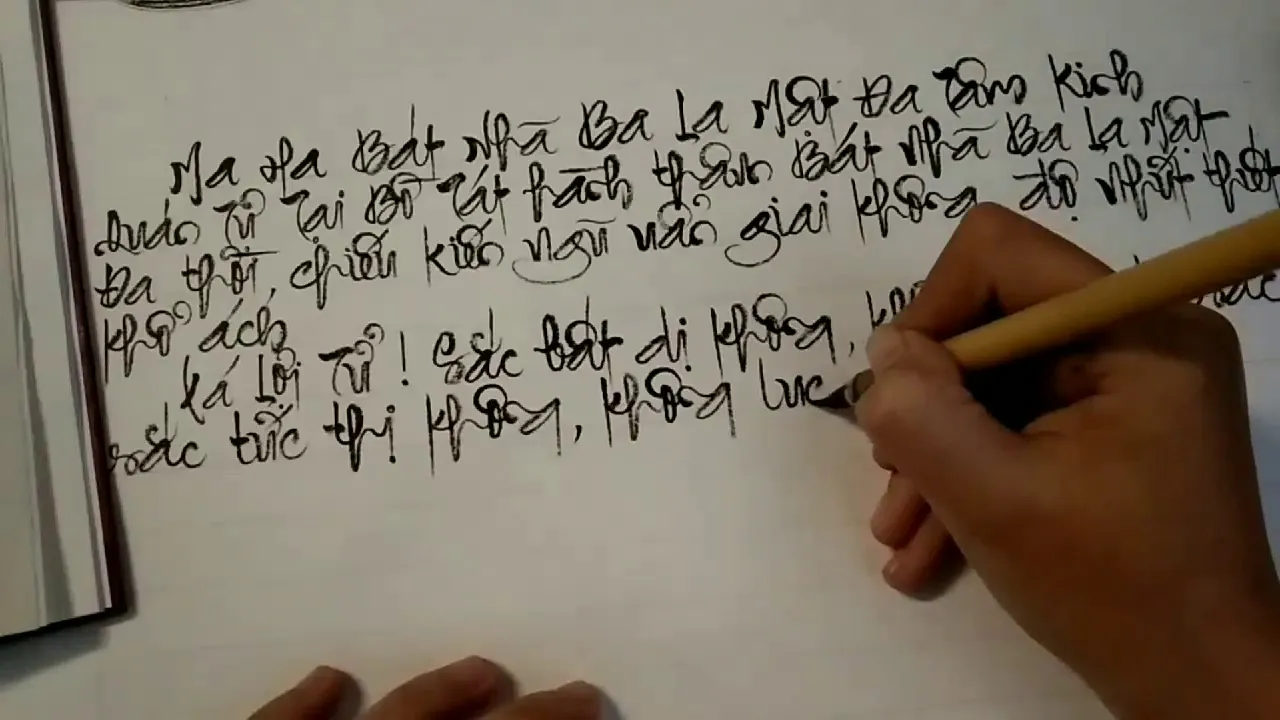 Ma Ha Bát Nhã Ba La Mật Đa Tâm Kinh
Quán Tự Tại Bồ Tát hành thâm Bát Nhã Ba La Mật
Đa thời, chiếu kiến ngũ uẩn giai không, độ nhứt thiết
khổ ách
Xá Lợi Tử! Sắc bất dị không, sắc
sắc tức thị không, không tức